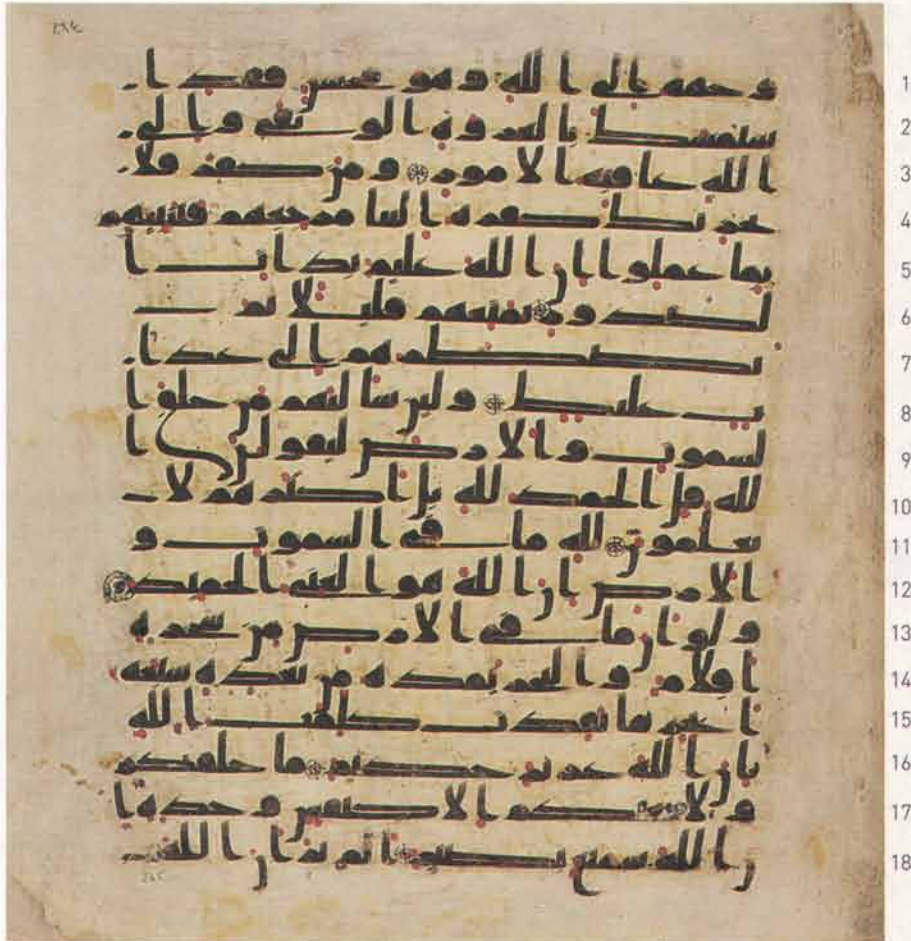 وجهه الى الله وهو محسن فقد ا 1
ستمسك بالعروة الوثقى والى 2
الله عاقبة الامور ومن كفر فلا 3
يحزنك كفره الينا مرجعهم فننبئهم 4
بما عملوا ان الله عليم بذات ا 5
لصدور نمتعهم قليلا ثم 6
نضطرهم الى عذا 7
ب غليظ ولئن سالتهم من خلق ا 8
لسموت والارض ليقولن ا 9
لله قل الحمد لله بل اكثرهم لا 10
يعلمون لله ما في السموت و 11
الارض ان الله هو الغني الحميد 12
ولو ان ما في الارض من شجرة 13
اقلام والبحر يمده من بعده سبعة 14
ابحر ما نفدت كلمت الله 15
ان الله عزيز حكيم ما خلقكم 16
ولا بعثكم الا كنفس وحدة ا 17
ن الله سميع بصير الم تر ان الله 18